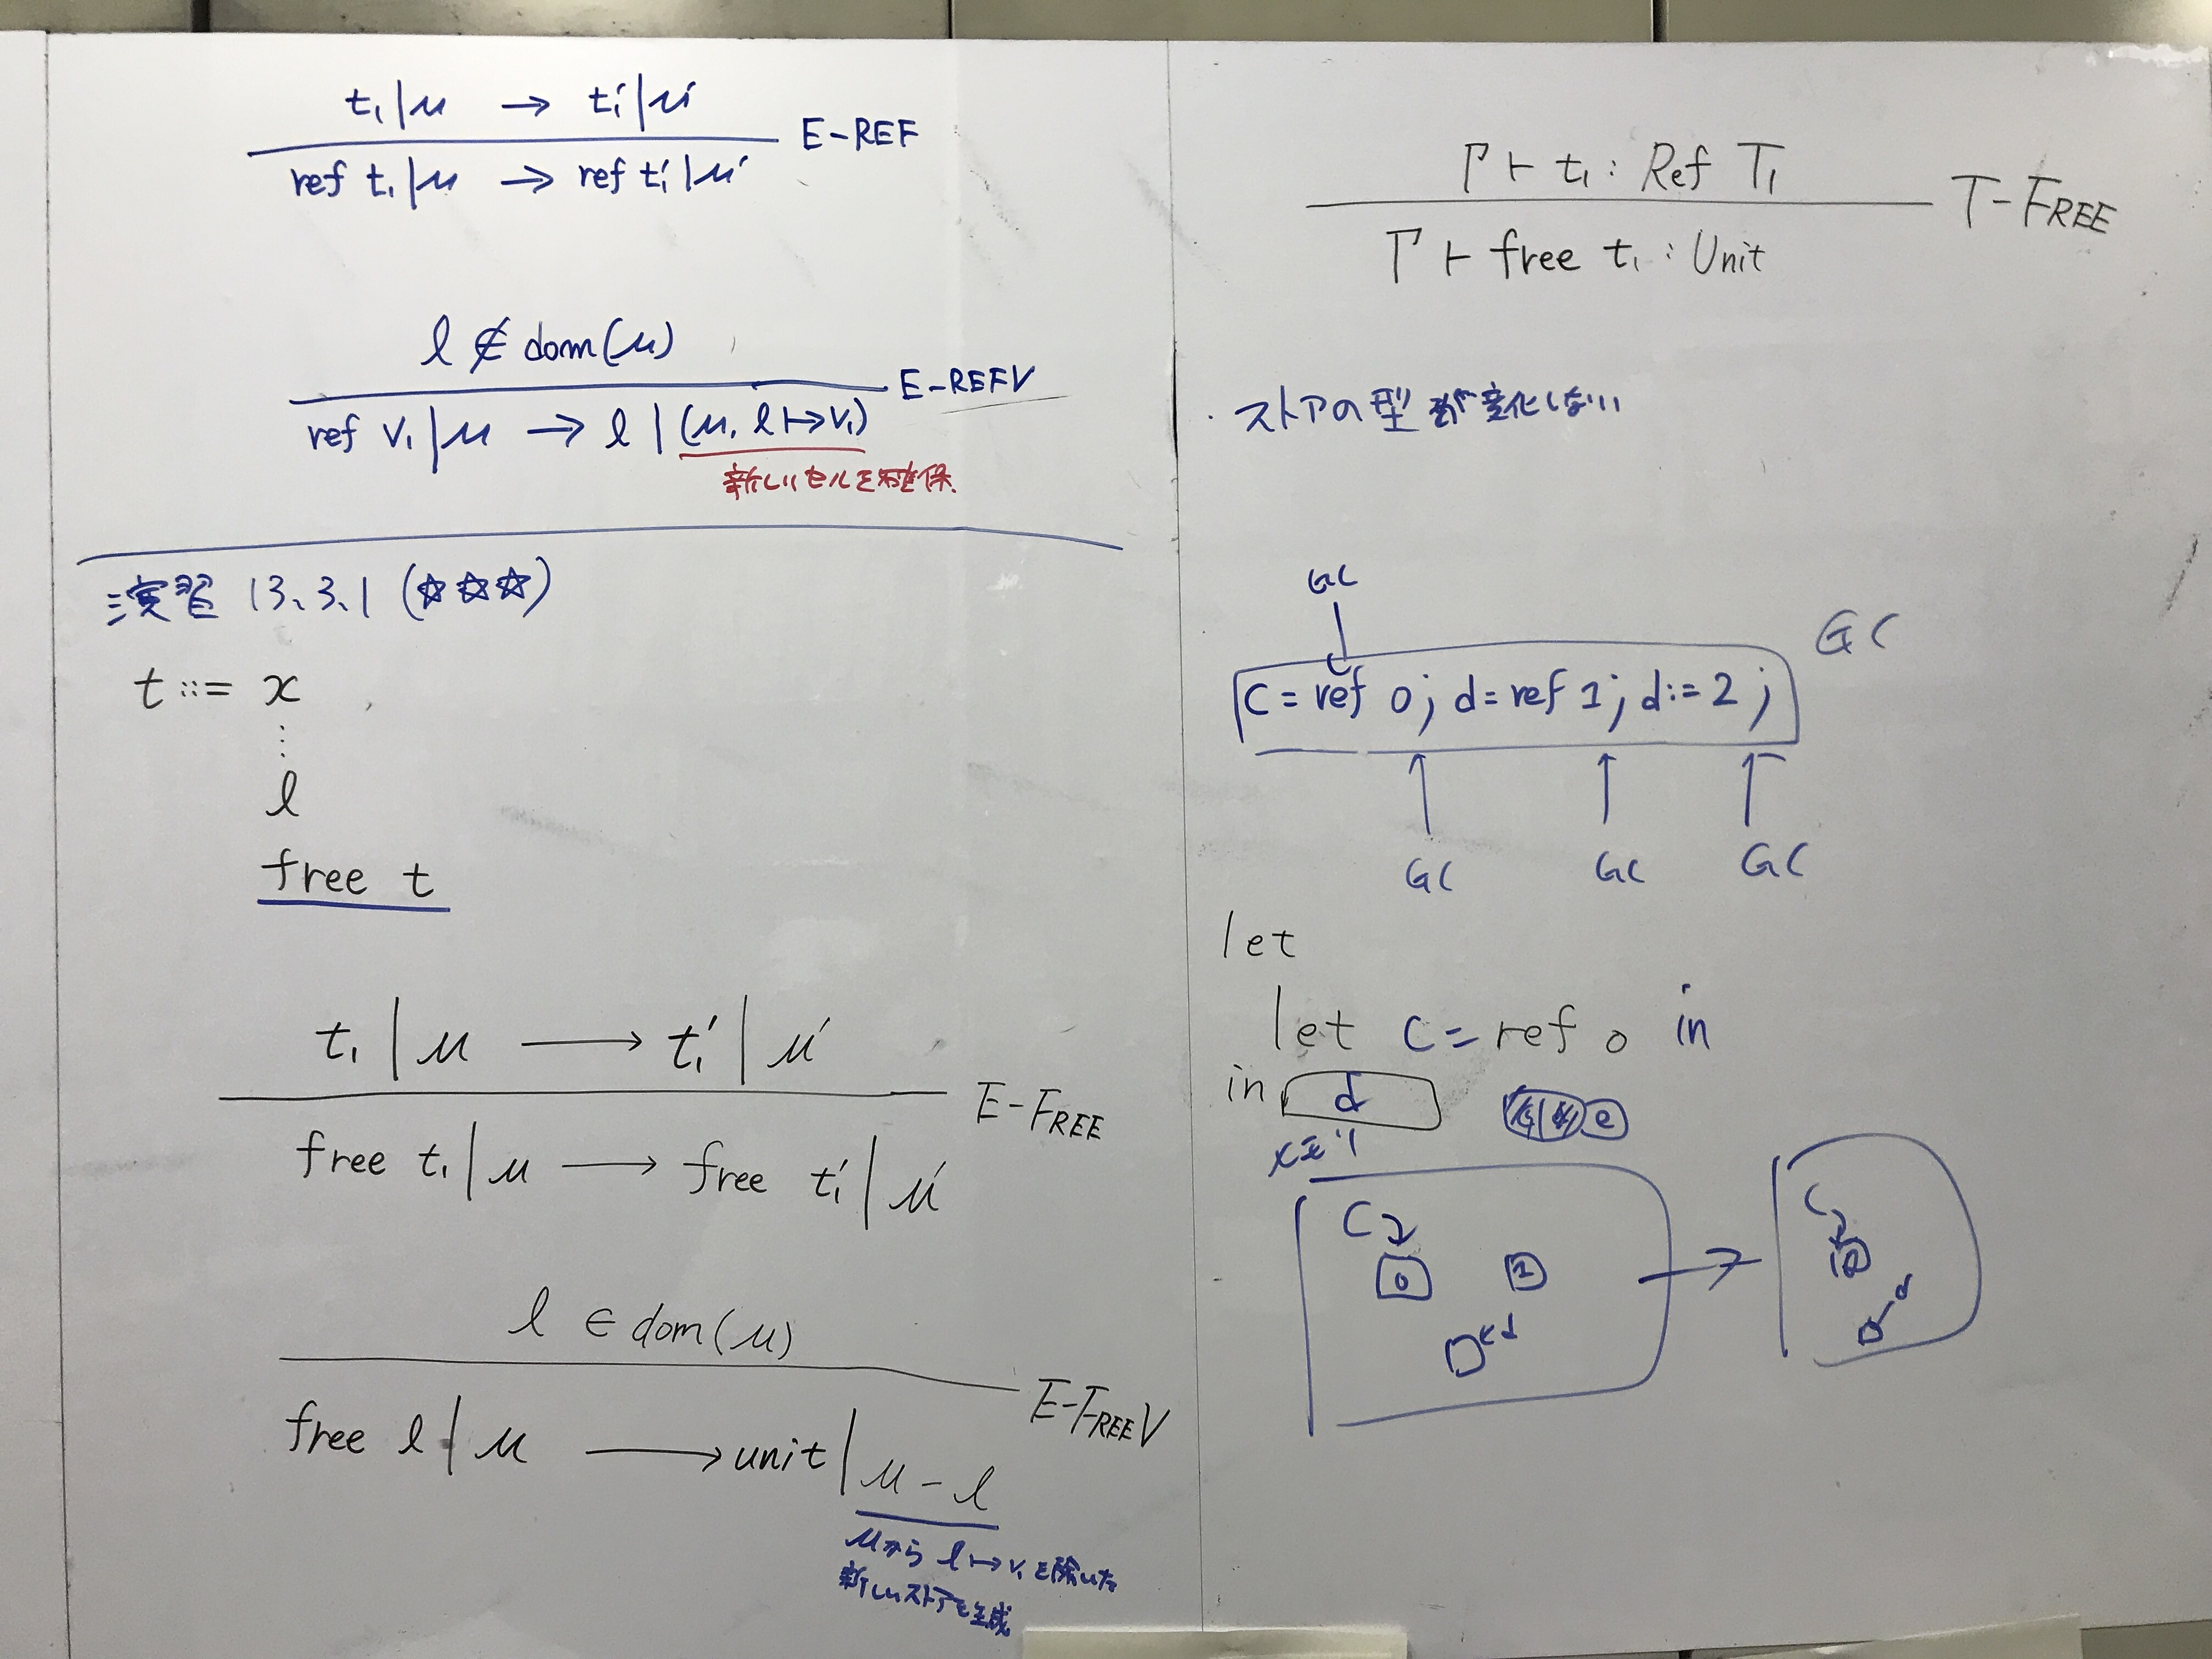 t₁ | μ → t₁' | μ'
ref t₁ | μ → ref t₁' | μ'
E-REF
l ∉ dom(μ)
ref v₁ | μ → l | (μ, l ↦ v₁)
E-REFV
新しいセルを確保
演習 13.3.1 (☆☆☆)
t ::= x
⋮
l
free t
t₁ | μ → t₁' | μ'
free t₁ | μ → free t₁' | μ'
E-FREE
l ∈ dom(μ)
free l | μ → unit | μ - l
E-FREEV
μから l ↦ v₁ を除いた
新しいストアを生成
Γ ⊢ t₁ : Ref T₁
Γ ⊢ free t₁ : Unit
T-FREE
・ストアの型が変化しない
GC
GC
C = ref 0; d = ref 1; d := 2;
GC GC GC
let
let C = ref 0 in
in d
e
メモリ
C
0 1
d
C
d